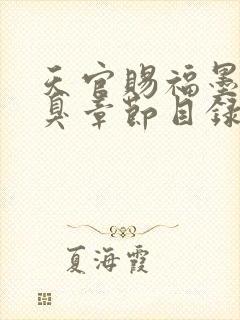 天官賜福墨
真章節目錄
夏海霞